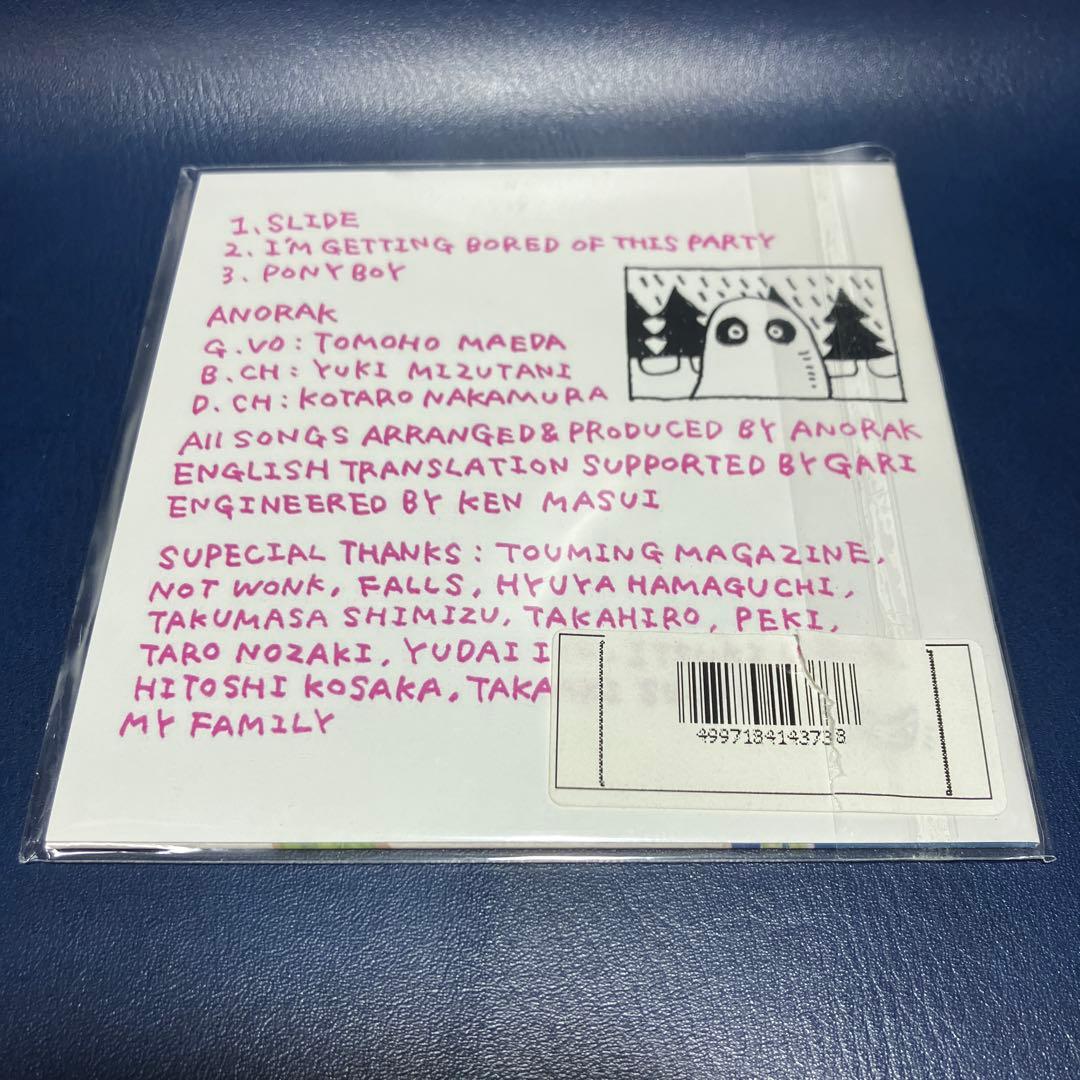 1. SLIDE
2. I'M GETTING BORED OF THIS PARTY
3. PONYBOY
ANORAK
G.VO: TOMOHO MAEDA
B.CH: YUKI MIZUTANI
D.CH: KOTARO NAKAMURA
All SONGS ARRANGED & PRODUCED BY ANORAK
ENGLISH TRANSLATION SUPPORTED BY GARI
ENGINEERED BY KEN MASUI
SUPECIAL THANKS: TOUMING MAGAZINE,
NOT WONK, FALLS, HYUYA HAMAGUCHI,
TAKUMASA SHIMIZU, TAKAHIRO, PEKI,
TARO NOZAKI, YUDAI
HITOSHI KOSAKA,
MY FAMILY
4997184143738